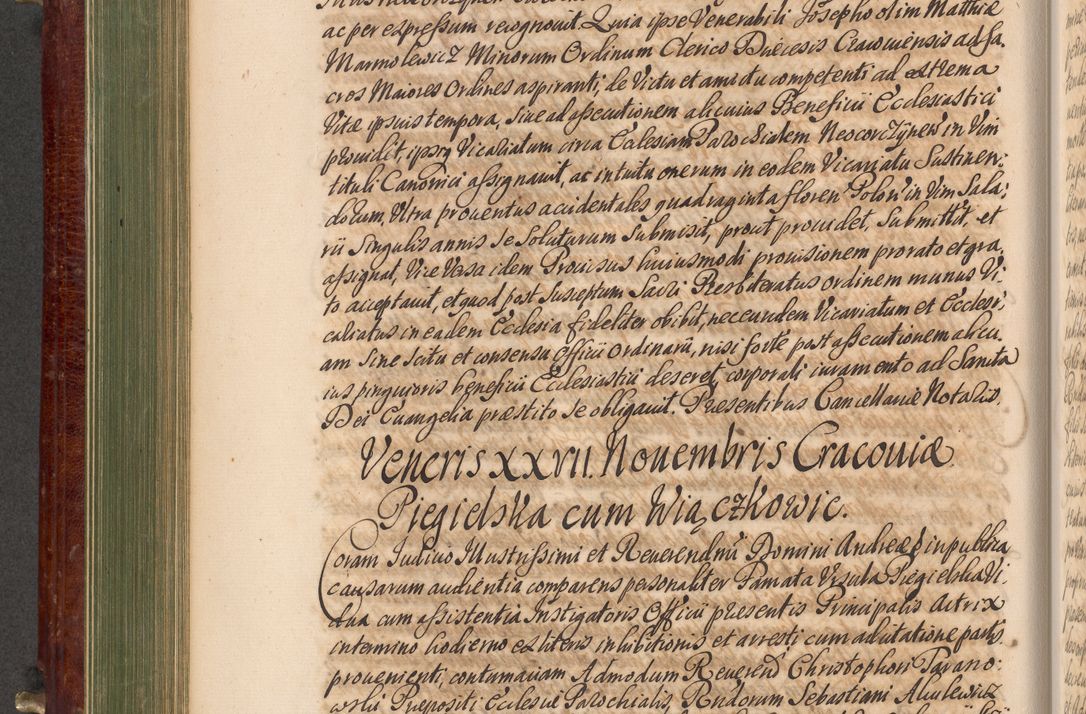 ac per expressum recognovit. Quia ipse Venerabili Josepho olim Matthiæ
Marmolewicz Minorum Ordinum Clerico Diæcesis Cracoviensis ad sa
cros Maiores Ordines aspiranti, de Victu et amictu competenti ad extrema
Vitæ ipsius tempora, sive ad assecutionem alicuius Beneficii Ecclesiastici
providit, ipsiq Vicariatum circa Ecclesiam Parochialem Neocorczynen in Vim
tituli Canonici assignavit, ac intuitu onerum in eodem Vicariatu Sustinen:
dorum, Ultra proventus accidentales quadraginta floren Polon in Vim Sala:
rii Singulis annis se Soluturum Submisit, prout providet, Submittit, et
assignat, Vice Versa idem Provisus huiusmodi provisionem pro rato et gra
to acceptavit, et quod post Susceptum Sacri Presbiteratus ordinem munus Vi:
cariatus in eadem Ecclesia fideliter obibit, nec eundem Vicariatum et Ecclesi:
am Sine Scitu et consensu Officii Ordinarii, nisi forte post assecutionem alicu
ius pinguioris beneficii Ecclesiastici deseret, corporali iuramento ad Sancta
Dei Euangelia præstito se obligavit. Præsentibus Cancellariæ Notariis.
Veneris XXVII. Novembris Cracoviæ.
Piegielska cum Wiączkowic.
Coram Judicio Illustrissimi et Reverendmi Domini Andreæ in publica
causarum audientia comparens personaliter Famata Ursula Piegielska Vi
dua cum assistentia Instigatoris Officii præsentis Principalis Actrix
in termino hodierno ex literis inhibitionis et arresti cum ad citatione partis
provenienti, contumaciam Admodum Reverend Christophori Tarano:
wski Præpositi Ecclesiæ Parochialis, Rndorum Sebastiani Akulewicz